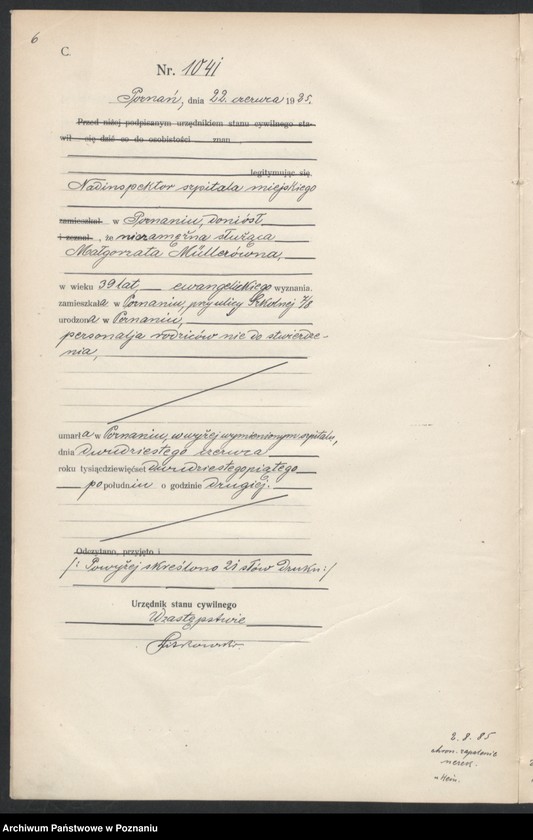 6
C.
Nr. 1041
Poznań, dnia 22 czerwca 1925.
Przed niżej podpisanym urzędnikiem stanu cywilnego sta-
wił się dziś co do osobistości znan
legitymując się
Nadinspektor szpitala miejskiego
zamieszkał w Poznaniu, doniósł
i zeznał, że niezamężna służąca
Małgorzata Müllerówna,
w wieku 39 lat, ewangelickiego wyznania.
zamieszkała w Poznaniu, przy ulicy Szkolnej 7/8
urodzona w Poznaniu,
personalja rodziców nie do stwierdze-
nia,
umarła w Poznaniu, w wyżej wymienionym szpitalu,
dnia dwudziestego czerwca
roku tysiącdziewięćset dwudziestegopiątego
po południu o godzinie drugiej.
Odczytano, przyjęto i
/: Powyżej skreślono 21 słów druku :/
Urzędnik stanu cywilnego
W zastępstwie
2. 8. 85
Archiwum Państwowe w Poznaniu